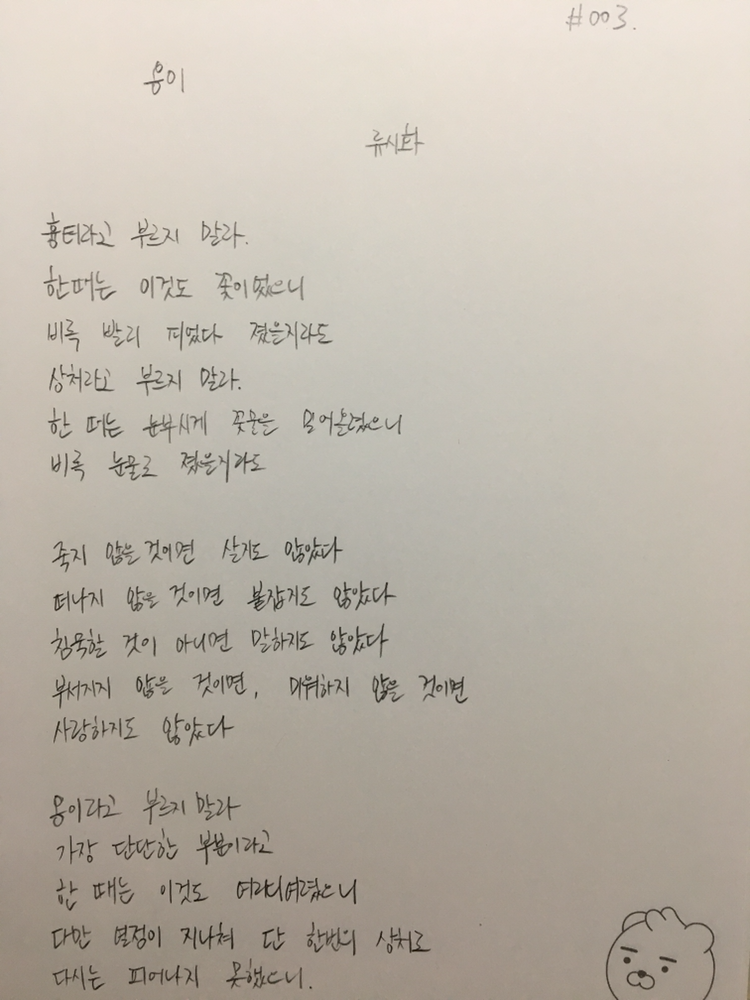 #003.
옹이
류시화
흉터라고 부르지 말라.
한때는 이것도 꽃이었으니
비록 빨리 피었다 졌을지라도
상처라고 부르지 말라.
한 때는 눈부시게 꽃물을 밀어올렸으니
비록 눈물로 졌을지라도
죽지 않을 것이면 살지도 않았다
떠나지 않을 것이면 붙잡지도 않았다
침묵할 것이 아니면 말하지도 않았다
부서지지 않을 것이면, 미워하지 않을 것이면
사랑하지도 않았다
옹이라고 부르지 말라
가장 단단한 부분이라고
한 때는 이것도 여리디여렸으니
다만 열정이 지나쳐 단 한번의 상처로
다시는 피어나지 못했으니.